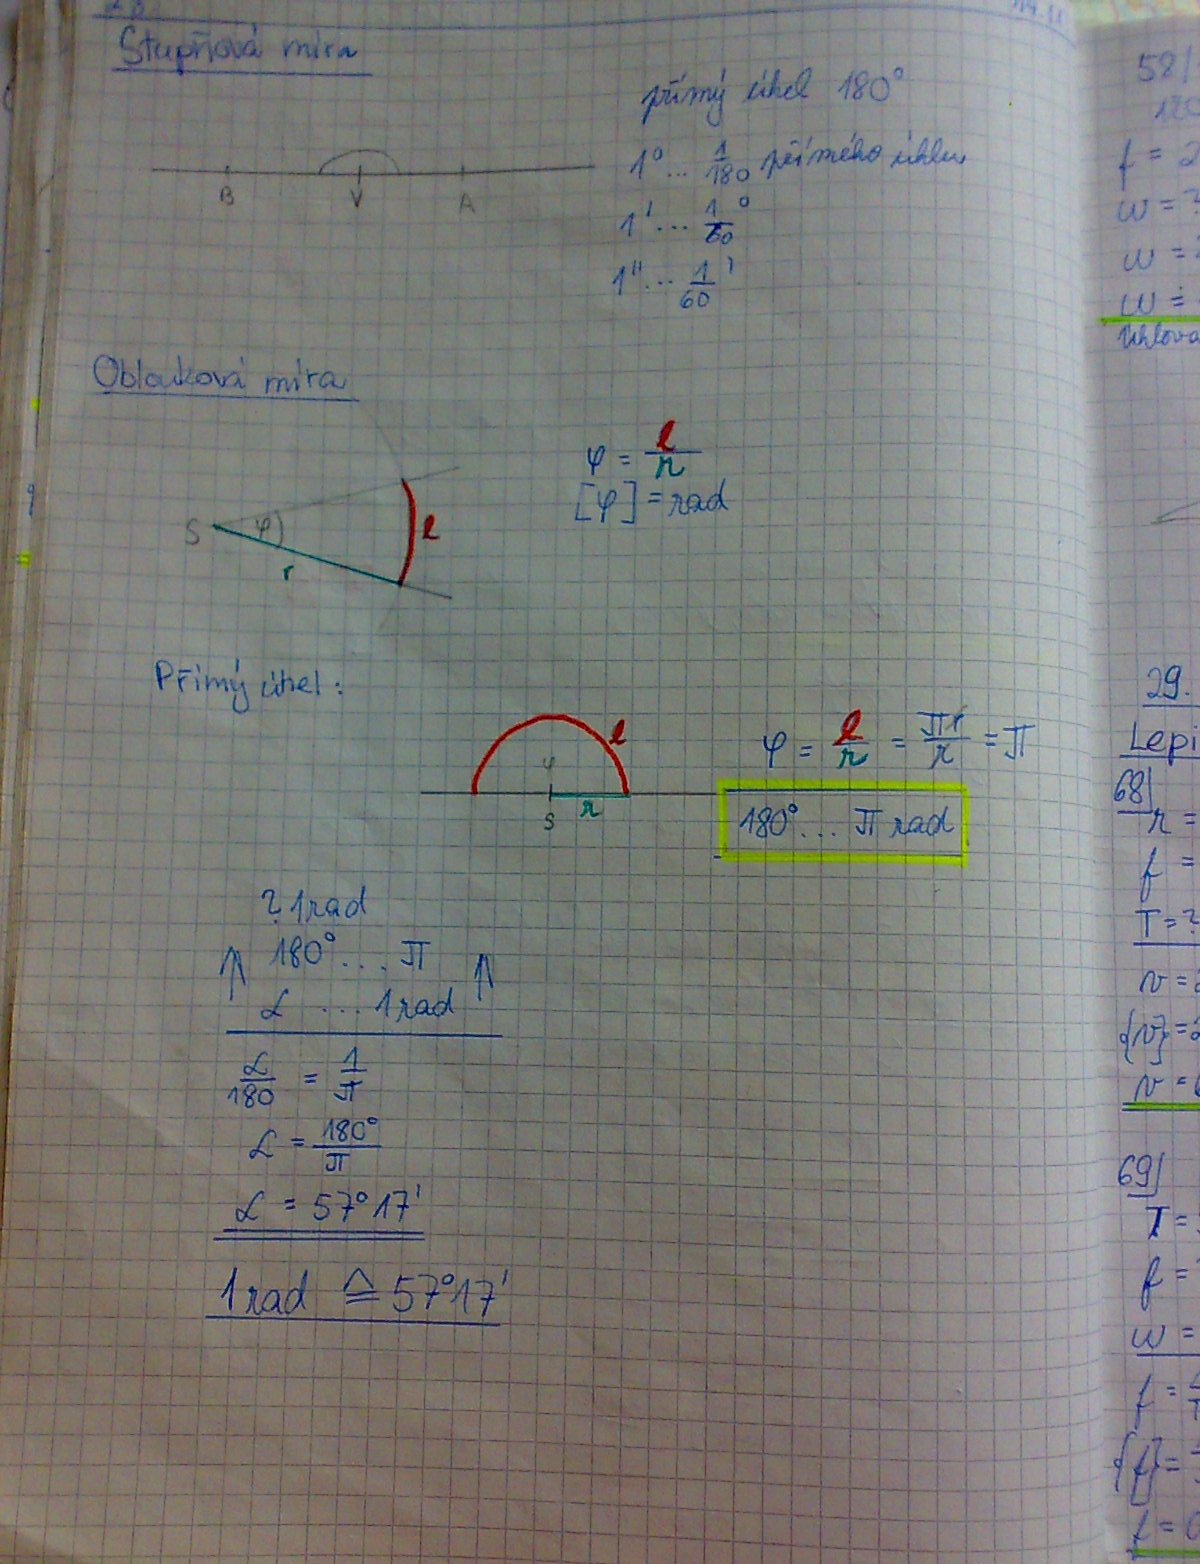 Stupňová míra
přímý úhel 180°
1° ... 1/180 přímého úhlu
B V A
1' ... 1/60 °
1'' ... 1/60 '
Oblouková míra
φ = l/r
[φ] = rad
S φ r l
Přímý úhel:
φ = l/r = πr/r = π
l
φ
S r
180° ... π rad
? 1 rad
180° ... π
α ... 1 rad
α/180 = 1/π
α = 180°/π
α = 57°17'
1 rad ≙ 57°17'
58/
f = 2
ω = ?
ω =
ω ≐
Úhlová
29.
Lepi
68/
r =
f =
T = ?
v =
{v} =
v =
69/
T =
f = ?
ω =
f =
{f} =
f = 0